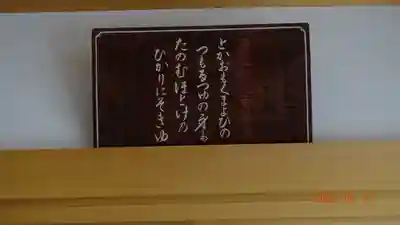 とかおもくまよひの
つもるつゆの身も
たのむほとけの
ひかりにそきゆ